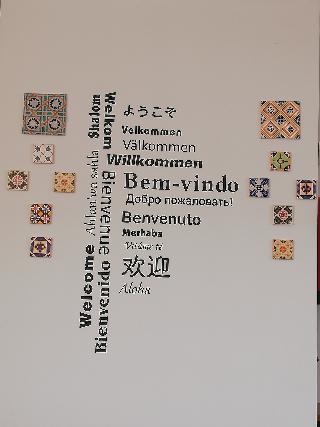 ようこそ
Velkommen
Välkommen
Willkommen
Bem-vindo
Добро пожаловать!
Benvenuto
Merhaba
欢迎
Aloha
Shalom
Welkom
Bienvenue
Welcome
Bienvenido